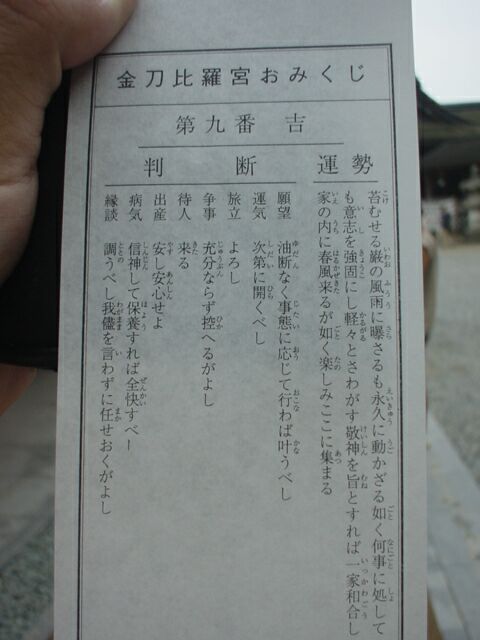 金刀比羅宮おみくじ
第九番 吉
運勢
苔むせる巌の風雨に曝さるも永久に動かざる如く何事に処して
も意志を強固にし軽々とさわがす敬神を旨とすれば一家和合し
家の内に春風来るが如く楽しみここに集まる
判断
願望 油断なく事態に応じて行わば叶うべし
運気 次第に開くべし
旅立 よろし
争事 充分ならず控へるがよし
待人 来る
出産 安し安心せよ
病気 信神して保養すれば全快すべー
縁談 調うべし我儘を言わずに任せおくがよし